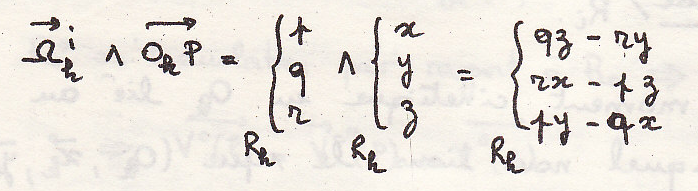 $\overrightarrow{\Omega}_k^i \wedge \overrightarrow{O_k P} = \underset{R_k}{\begin{cases} p \\ q \\ r \end{cases}} \wedge \underset{R_k}{\begin{cases} x \\ y \\ z \end{cases}} = \underset{R_k}{\begin{cases} qz - ry \\ rx - pz \\ py - qx \end{cases}}$